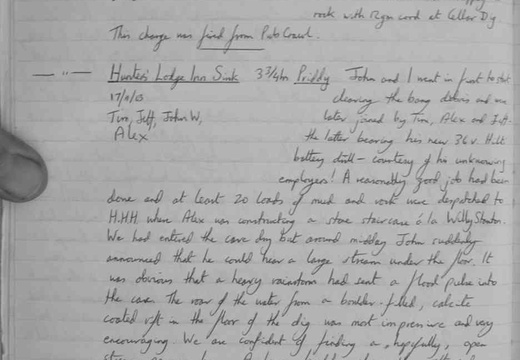 rock with 12gm cord at Cellar Dig
This charge was fired from Pub Crawl.
— " — Hunters' Lodge Inn Sink 3 3/4hr Priddy John and I went in first to start
17/9/03 clearing the bang debris and were
Tim, Jeff, John W, later joined by Tim, Alex and Jeff -
Alex the latter bearing his new 36v. Hilti
battery drill - courtesy of his unknowing
employers! A reasonably good job had been
done and at least 20 loads of mud and rock were despatched to
H.H.H. where Alex was constructing a stone staircase á la Willy Stanton.
We had entered the cave dry but around midday John suddenly
announced that he could hear a large stream under the floor. It
was obvious that a heavy rainstorm had sent a flood pulse into
the cave. The roar of the water from a boulder-filled, calcite
coated rift in the floor of the dig was most impressive and very
encouraging. We are confident of finding a, hopefully, open